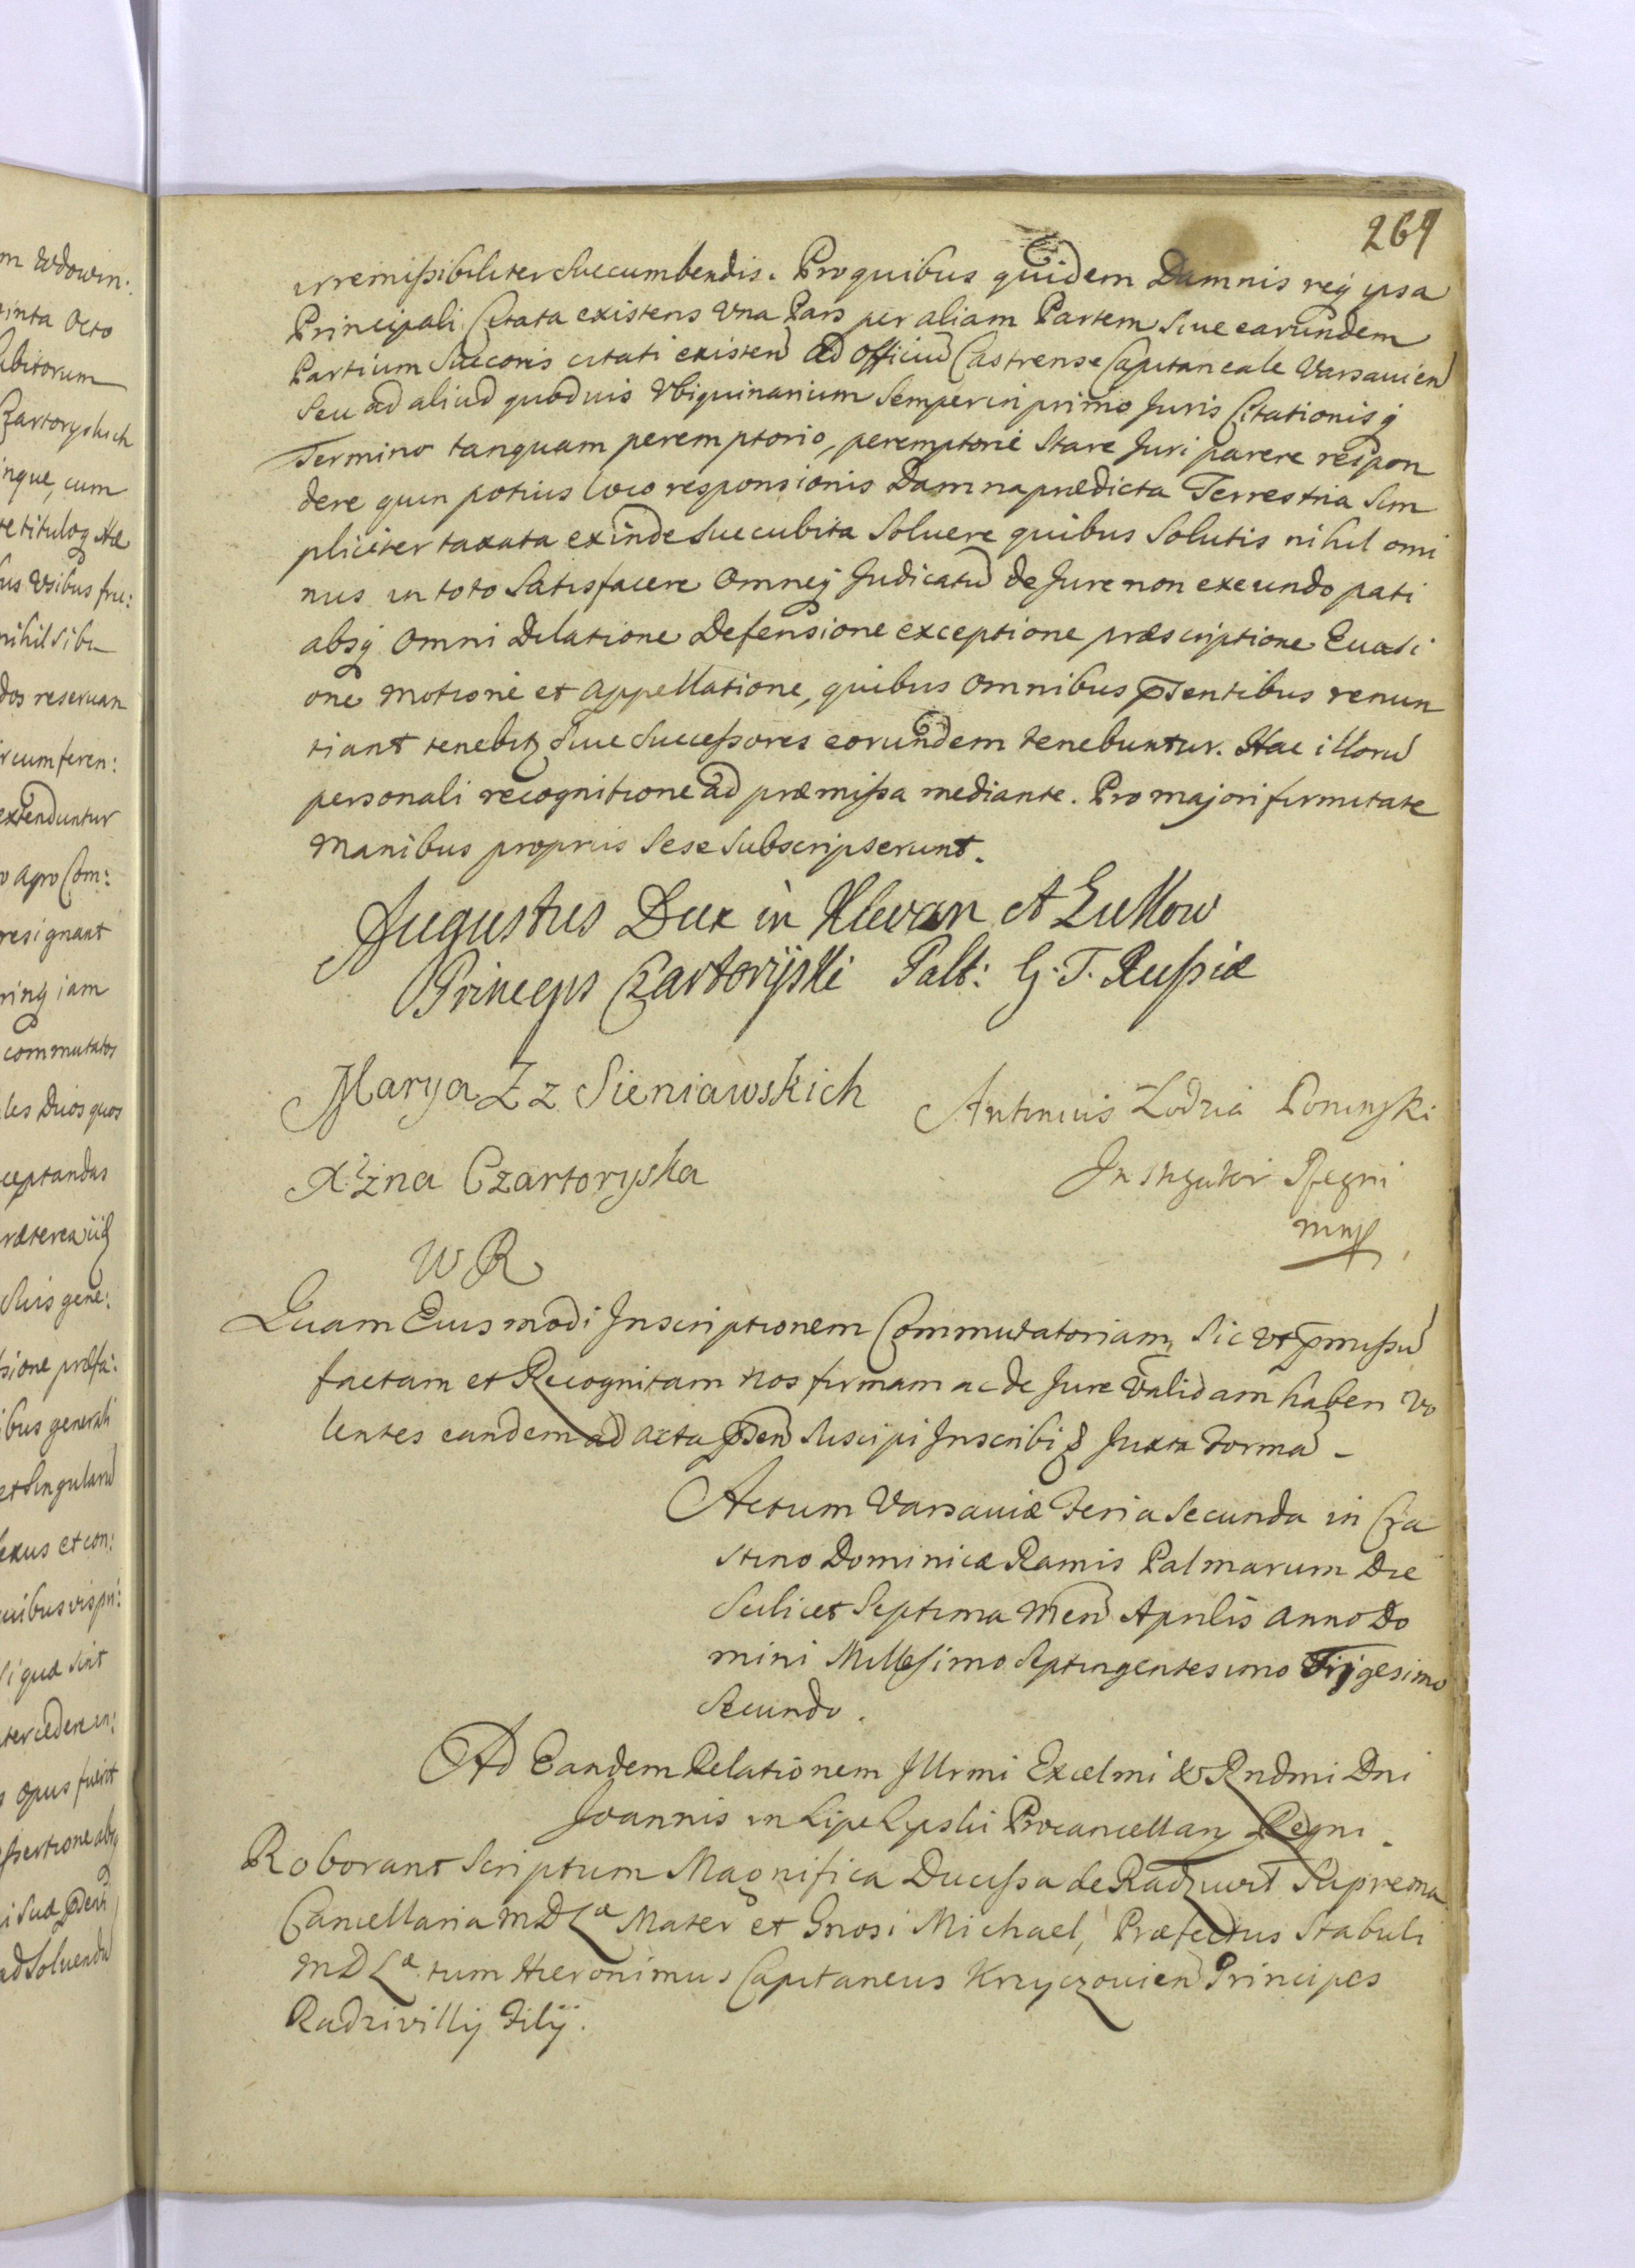 m Wdowin:
inta Octo
ubitorum
Czartoryskich
inque, cum
us Vsibus fru:
nihil sibi
dos reseruan
ircumferen:
extenduntur
o agro Com:
resignant
iam
commutatos
les Duos quos
ceptandas
Suis gene:
sione præfa:
ibus generali
et Singularũ
exus et con:
Si qua sint
opus fuerit
ad Soluendũ
269
irremissibiliter Succumbendis. Pro quibus quidem Damnis reqʒ ipsa
Principali Citata existens Vna Pars per aliam Partem Siue earundem
Partium Succoris citati existen ad Officiũ Castrense Capitaneale Varsauien
Seu ad aliud quoduis Vbiquinarium Semper in primo Juris Citationisqʒ
Termino tanquam peremptorio, peremptorie Stare Juri parere respon
dere quin potius loco responsionis Damna prædicta Terrestria Sim
pliciter taxata exinde Succubita Soluere quibus Solutis nihil omi
nus in toto Satisfacere Omneqʒ Judicatũ de Jure non exeundo pati
absqʒ Omni Dilatione Defensione exceptione præscriptione Euasi
one Motione et Appellatione, quibus Omnibus pñsentibus renun
tiant tenebitʒ Siue Successores eorundem tenebuntur. Hac illorũ
personali recognitione ad præmissa mediante. Pro majori firmitate
Manibus proprijs Sese Subscripserunt.
Augustus Dux in Klewan et Zukow
Princeps Czartoryski Palt: G. T. Russiæ
Marya Z z Sieniawskich
Antonius Lodzia Poninski
Xżna Czartoryska
Instigator Regni
mpp
W R
Quam Eiusmodi Inscriptionem Commutatoriam, Sic vt pmissũ
factam et Recognitam Nos firmam ac de Jure Validam haberi Vo
lentes eandem ad Acta pñsen Suscipi Inscribi & Juxta Formã -
Actum Varsauiæ Feria Secunda in Cra
stino Dominicæ Ramis Palmarum Die
Scilicet Septima Men Aprilis Anno Do
mini Millesimo Septingentesimo Trigesimo
Secundo.
Ad Eandem Relationem Illrmi Excelmi & Rndmi Dni
Joannis in Lipe Lipski Procancellarij Regni.
Roborant Scriptum Magnifica Ducissa de Radziwił Suprema
Cancellaria M D Læ Mater et Gnosi Michael, Præfectus Stabuli
M D Læ tum Hieronimus Capitaneus Krzyczouien Principes
Radziwillij Filij.